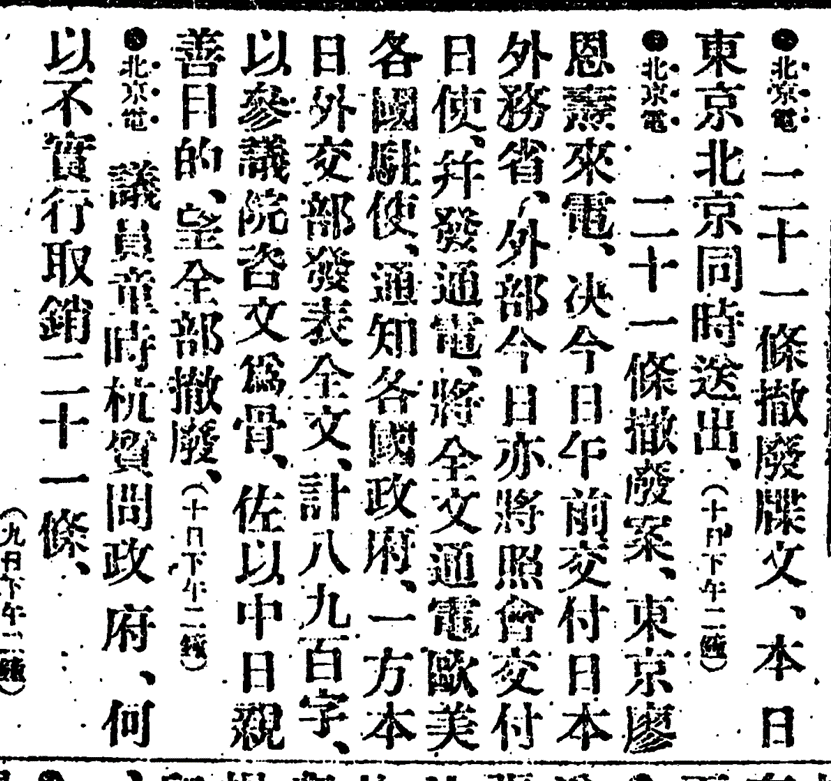 北京電 二十一條撤廢牒文、本日
東京北京同時送出、(十日下午二鐘)
北京電 二十一條撤廢案、東京廖
恩燾來電、決今日午前交付日本
外務省、外部今日亦將照會交付
日使、幷發通電、將全文通電歐美
各國駐使、通知各國政府、一方本
日外交部發表全文、計八九百字、
以參議院咨文爲骨、佐以中日親
善目的、望全部撤廢、(十日下午二鐘)
北京電 議員童時杭質問政府、何
以不實行取銷二十一條、
(九日下午二鐘)